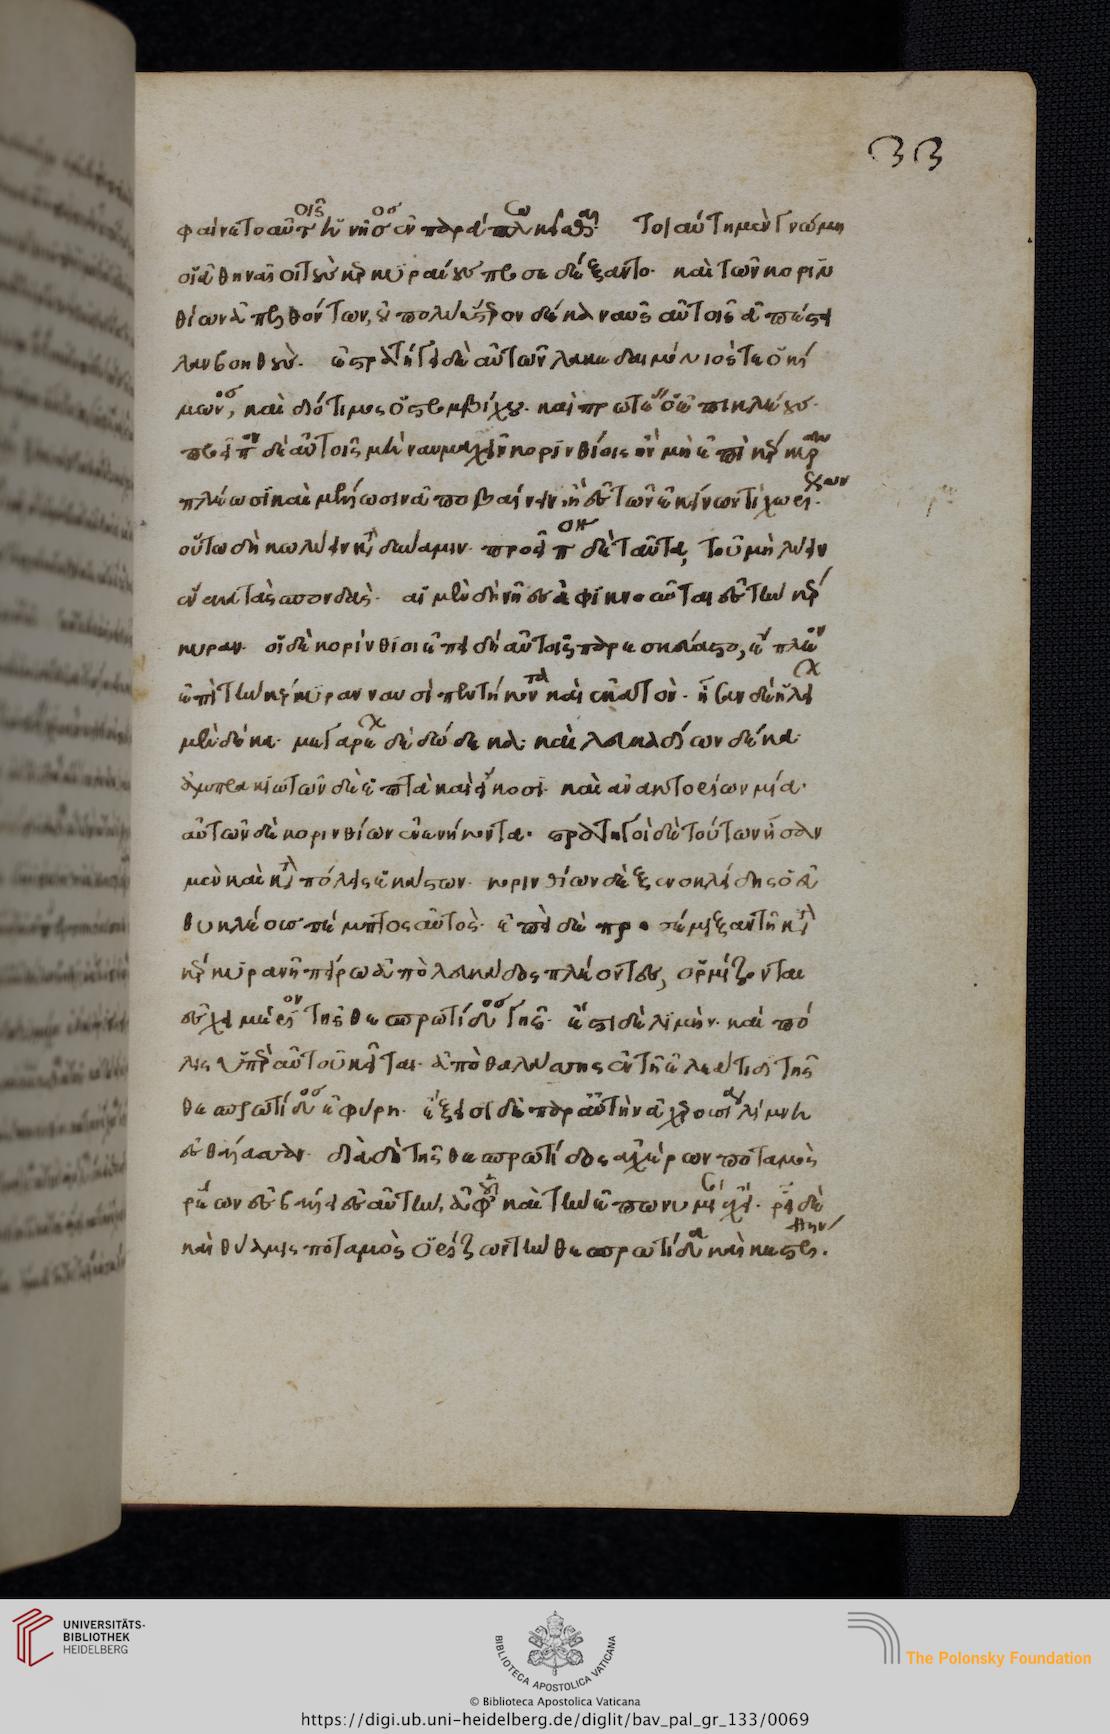 33
φαίνετο αὐτοῖς ἡ νῆσος ἐν παράπλῳ κεῖσθαι. Τοιαύτη μὲν γνώμη
οἱ ἀθηναῖοι τοὺς κερκυραίους προσεδέξαντο. καὶ τῶν κοριν
θίων ἀπελθόντων, οὐ πολὺ ὕστερον δέκα ναῦς αὐτοῖς ἀπέστει
λαν βοηθούς. ἐστρατήγει δὲ αὐτῶν λακεδαιμόνιός τε ὁ κί
μωνος, καὶ διότιμος ὁ στρομβίχου. καὶ πρωτέας ὁ ἐπικλέους.
προεῖπον δὲ αὐτοῖς μὴ ναυμαχεῖν κορινθίοις ἢν μὴ ἐπὶ κέρκυραν
πλέωσι καὶ μέλλωσιν ἀποβαίνειν ἢ ἐς τῶν ἐκείνων τι χωρίων.
οὕτω δὴ κωλύειν κατὰ δύναμιν. προεῖπον δὲ ταῦτα, τοῦ μὴ λύειν
ἕνεκα τὰς σπονδάς. αἱ μὲν δὴ νῆες ἀφικνοῦνται ἐς τὴν κέρ
κυραν. οἱ δὲ κορίνθιοι ἐπειδὴ αὐτοῖς παρεσκεύαστο, ἔπλεον
ἐπὶ τὴν κέρκυραν ναυσὶ πεντήκοντα καὶ ἑκατόν. ἦσαν δὲ ἠλεί
μὲν δέκα. μεγαρέ δὲ δώδεκα. καὶ λευκαδίων δέκα.
ἀμπρακιωτῶν δὲ ἑπτὰ καὶ εἴκοσι. καὶ ἀνακτορίων μία.
αὐτῶν δὲ κορινθίων ἐνενήκοντα. στρατηγοὶ δὲ τούτων ἦσαν
μὲν καὶ κατὰ πόλεις ἑκάστων. κορινθίων δὲ ξενοκλείδης ὁ εὐ
θυκλέους πέμπτος αὐτός. ἐπειδὴ δὲ προσέμιξαν τῇ κατὰ
κέρκυραν ἠπείρῳ ἀπὸ λευκάδος πλέοντες, ὁρμίζονται
ἐς χειμέριον τῆς θεσπρωτίδος γῆς. ἔστι δὲ λιμήν. καὶ πό
λις ὑπὲρ αὐτοῦ κεῖται. ἀπὸ θαλάσσης ἐν τῇ ἐλαιάτιδι τῆς
θεσπρωτίδος ἐφύρη. ἔξεισι δὲ παρ' αὐτὴν ἀχερουσία λίμνη
ἐς θάλασσαν. διὰ δὲ τῆς θεσπρωτίδος ἀχέρων ποταμὸς
ῥέων ἐσβάλλει ἐς αὐτήν, ἀφ' οὗ καὶ τὴν ἐπωνυμίαν ἔχει. ῥεῖ δὲ
καὶ θύαμις ποταμὸς ὁρίζων τὴν θεσπρωτίδα καὶ κεστρίνην.
UNIVERSITÄTS-
BIBLIOTHEK
HEIDELBERG
BIBLIOTECA APOSTOLICA VATICANA
The Polonsky Foundation
© Biblioteca Apostolica Vaticana
https://digi.ub.uni-heidelberg.de/diglit/bav_pal_gr_133/0069